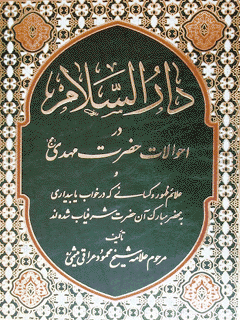 دارُ السَّلام
در
احوالات حضرت مهدی عج
و
علائم ظهور و کسانی که در خواب یا بیداری
به محضر مبارک آن حضرت شرفیاب شده اند
تألیف
مرحوم علامه شیخ محمود عراقی میثمی